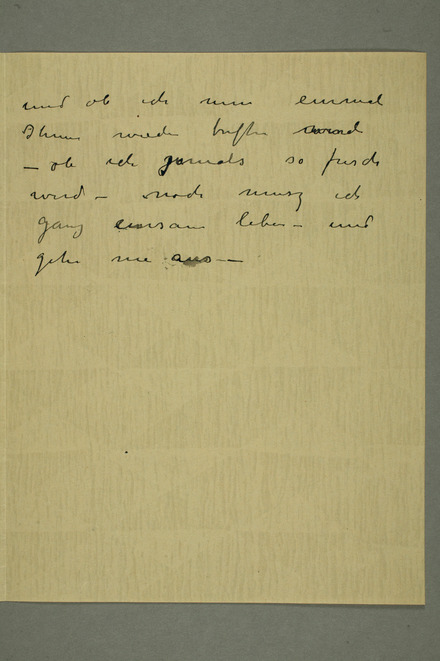 und ob ich nun einmal
Ihnen wieder treffen werd
– ob ich jemals so frisch
werd – noch musz ich
ganz einsam leben – und
gehe nie aus –